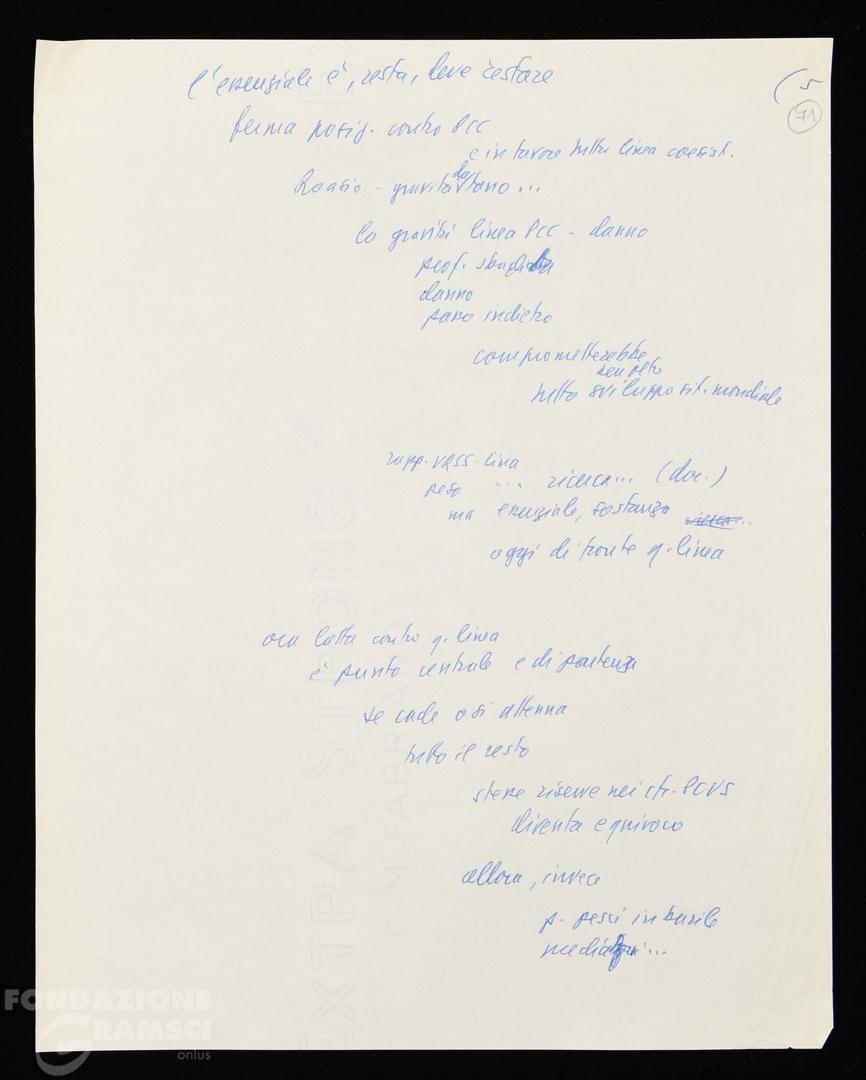 (5
71
l'essenziale è, resta, deve restare
ferma posiz. contro PCC
e in favore nostra linea coesist.
Roasio - gravità da
la gravità linea PCC - danno
prof. sbagliata
danno
passo indietro
comprometterebbe
tutto sviluppo sit. mondiale
rapp. URSS-Cina
peso ... ricerca... (doc.)
ma essenziale, sostanza ricerca...
oggi di fronte q. linea
ora lotta contro q. linea
è punto centrale e di partenza
se cade o si attenua
tutto il resto
stesse riserve nei cfr. PCUS
diventa equivoco
allora, invece
p. pesci in barile
mediatori...
EXTRA STRONG
FABRIANO
FONDAZIONE
GRAMSCI
onlus